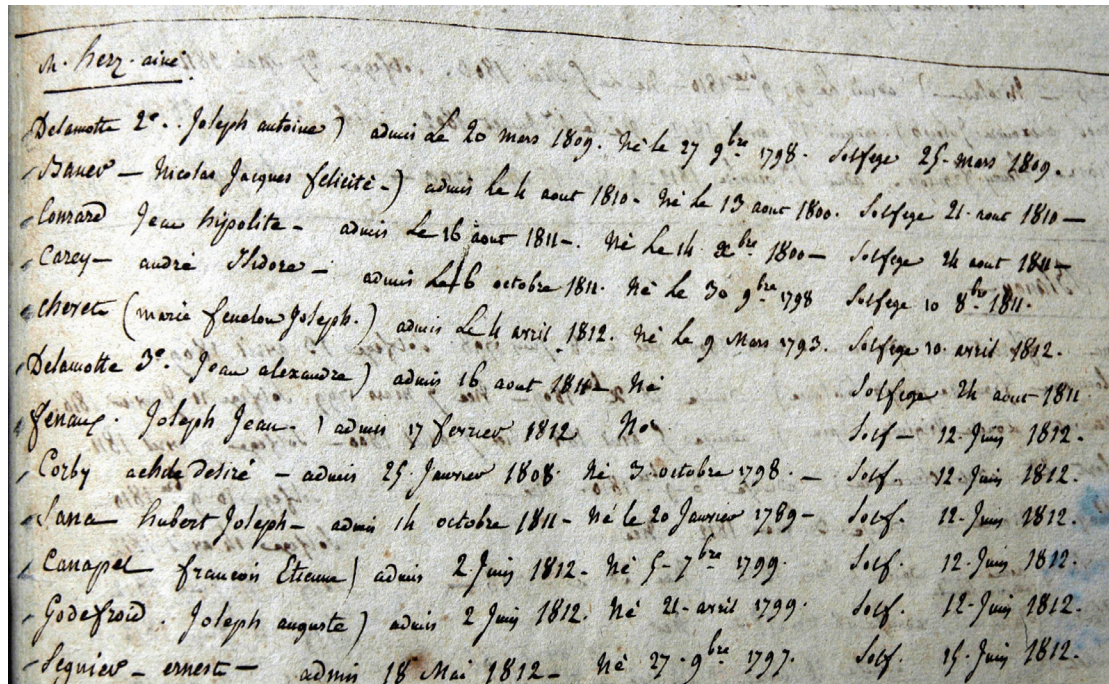 M. herz. aine
Delamotte 2e. Joseph antoine) admis Le 20 mars 1809. Né le 27 9bre 1798. Solfege 25. mars 1809.
Nicolas Jacques félicité-) admis le 4 aout 1810- Né le 13 aout 1800. Solfege 21. aout 1810-
Conrard Jean hipolite- admis Le 16 aout 1811-. Né Le 14. xbre. 1800- Solfege 24 aout 1811-
Carey- andré Isidore- admis Le 16 octobre 1811. Né Le 30 9bre 1798 Solfege 10 8bre 1811.
cheret (marie fenelon Joseph.) admis Le 4 avril 1812. Né le 9 Mars 1793. Solfege 10. avril 1812.
Delamotte 3e. Jean alexandre) admis 16 aout 1811- Né Solfege 24 aout 1811
fenaux. Joseph Jean-) admis 17 fevrier 1812 Né Solf- 12. Juin 1812.
Corby desiré - admis 25. Janvier 1808. Né 3 octobre 1798. - Solf. 12. Juin 1812.
hubert Joseph- admis 14 octobre 1811- Né le 20 Janvier 1789- Solf. 12. Juin 1812.
Canapel francois Etienne) admis 2. Juin 1812- Né 5- 7bre 1799. Solf. 12. Juin 1812.
Godefroid. Joseph auguste) admis 2 Juin 1812. Né 21- avril 1799. Solf. 12- Juin 1812.
Seguier - ernest - admis 18 Mai 1812- Né 27. 9bre 1797. Solf. 15. Juin 1812.